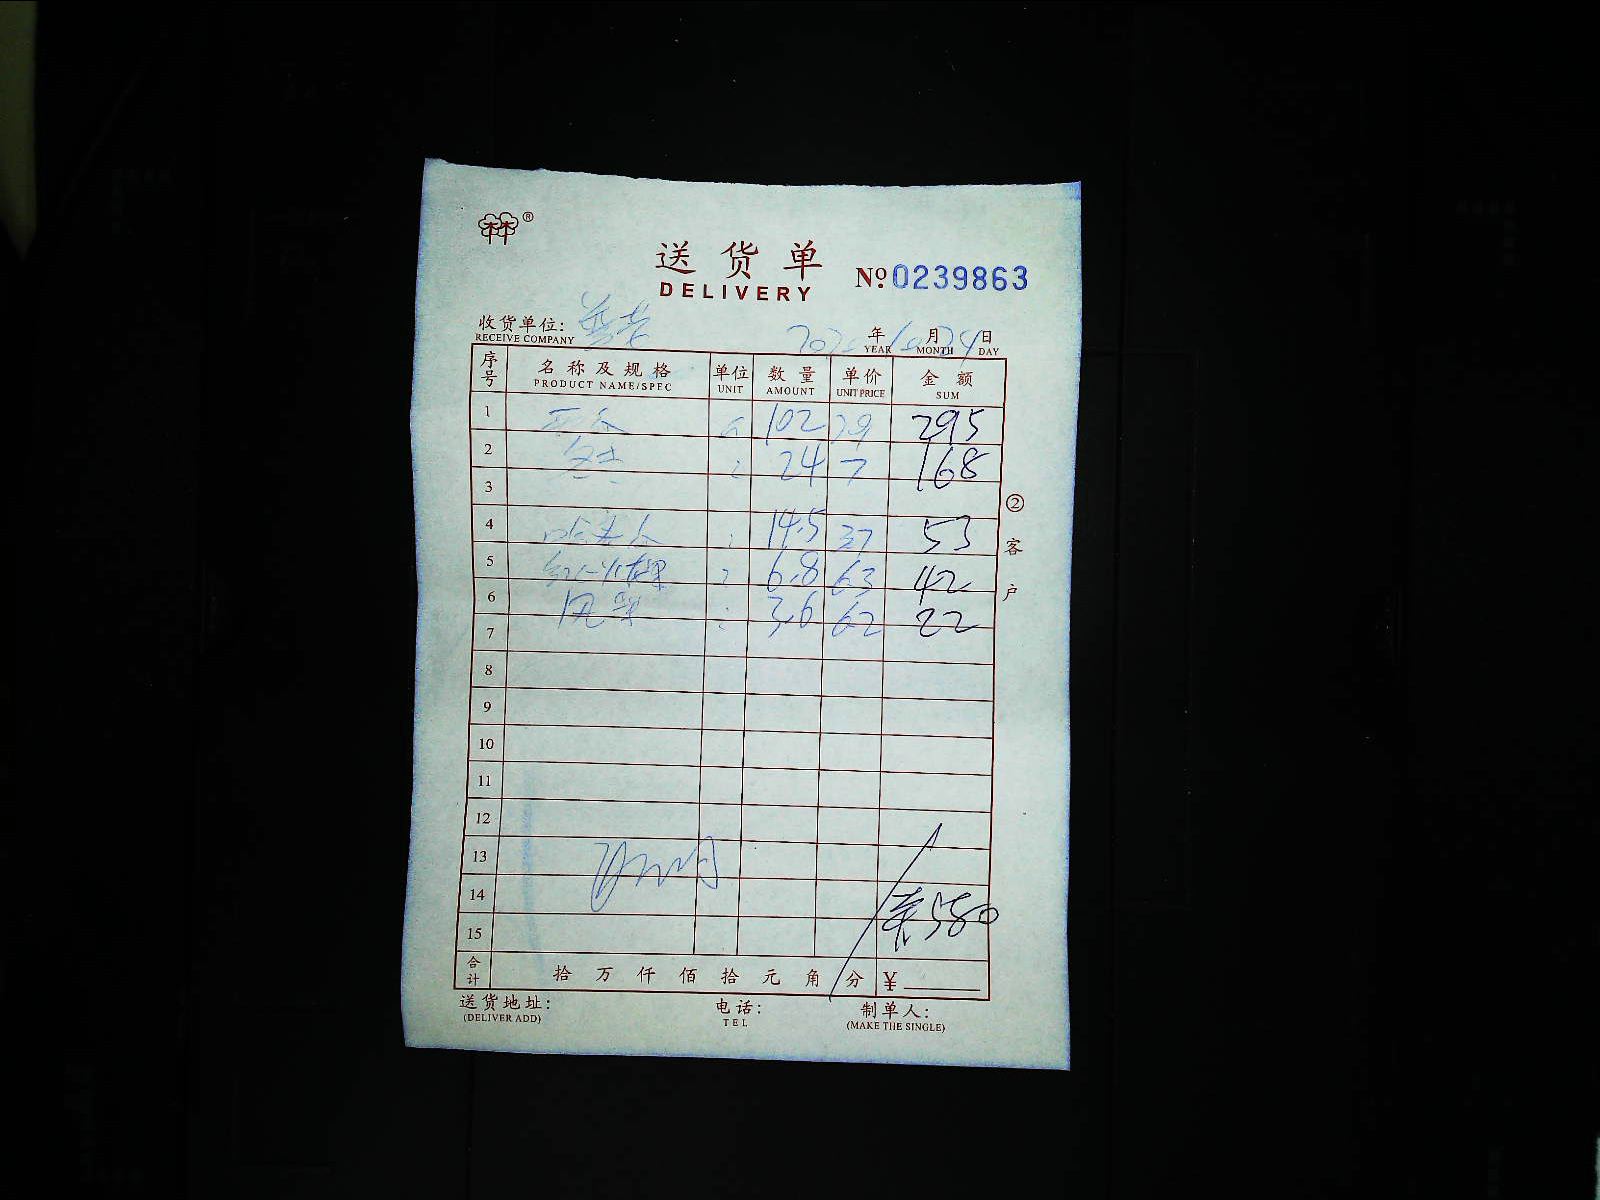 ®
送货单
DELIVERY
№ 0239863
收货单位:
RECEIVE COMPANY
年 月 24 日
YEAR MONTH DAY
序号 名称及规格 单位 数量 单价 金额
PRODUCT NAME/SPEC UNIT AMOUNT UNIT PRICE SUM
1 102 29 295
2 24 7 168
3
4 14.5 37 53
5 6.8 63 42
6 3.6 62 22
7
8
9
10
11
12
13
14 580
15
合计 拾 万 仟 佰 拾 元 角 分 ¥
② 客户
送货地址: 电话: 制单人:
(DELIVER ADD) TEL (MAKE THE SINGLE)